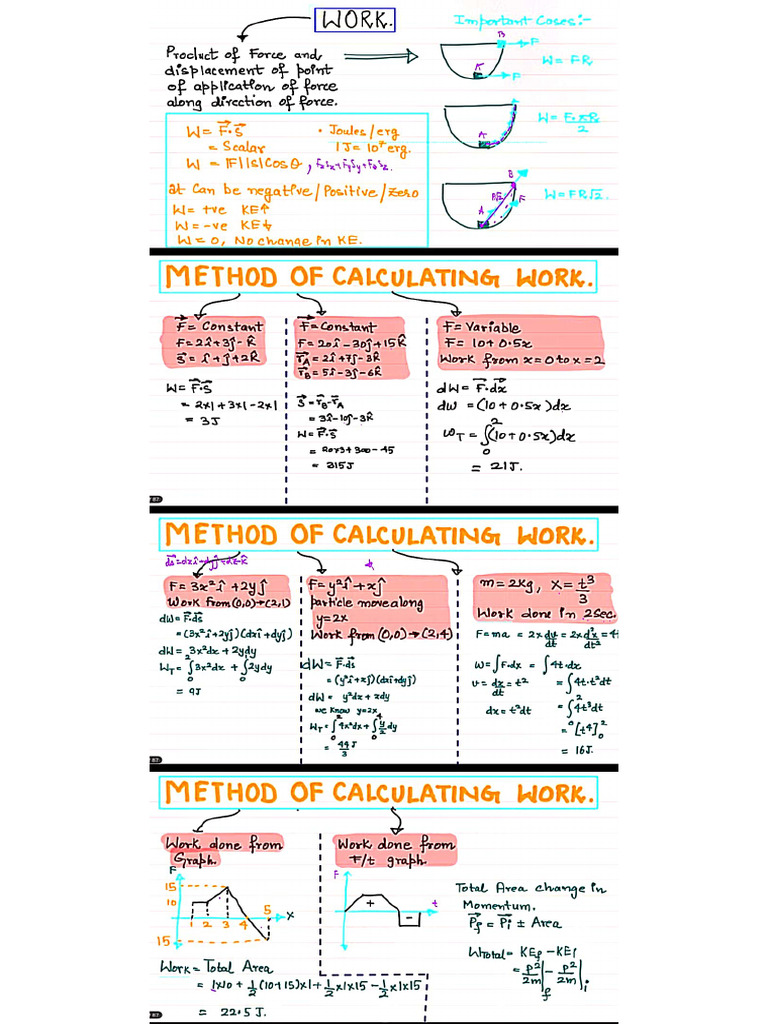 WORK.
Important Cases:-
Product of Force and
displacement of point
of application of force
along direction of force.
B
F
A
F
W = FR
W = F⃗·S⃗
= Scalar
W = |F||S|Cosθ
• Joules/erg
1J = 10⁷ erg.
, FxSx+FySy+FzSz.
It Can be negative/Positive/zero
W = +ve KE↑
W = -ve KE↓
W = 0, No change in KE.
A
W = F·πR/2
B
R√2
A
F
W = FR√2.
METHOD OF CALCULATING WORK.
F⃗ = Constant
F = 2î+3ĵ-k̂
S⃗ = î+ĵ+2k̂
W = F⃗·S⃗
= 2x1+3x1-2x1
= 3J
F⃗ = Constant
F = 20î-30ĵ+15k̂
r⃗A = 2î+7ĵ-3k̂
r⃗B = 5î-3ĵ-6k̂
S⃗ = r⃗B-r⃗A
= 3î-10ĵ-3k̂
W = F⃗·S⃗
= 20x3+300-45
= 315J
F = Variable
F = 10+0.5x
Work from x=0 to x=2
dW = F⃗·dx⃗
dW = (10+0.5x)dx
WT = ∫₀²(10+0.5x)dx
= 21J.
METHOD OF CALCULATING WORK.
ds⃗ = dxî+dyĵ+dzk̂
F = 3x²î+2yĵ
Work from (0,0)→(2,1)
dW = F⃗·ds⃗
= (3x²î+2yĵ)(dxî+dyĵ)
dW = 3x²dx+2ydy
WT = ∫₀²3x²dx + ∫₀2ydy
= 9J
F = y²î+xĵ
particle move along
y=2x
Work from (0,0)→(2,4)
dW = F⃗·ds⃗
= (y²î+xĵ)(dxî+dyĵ)
dW = y²dx+xdy
we know y=2x
WT = ∫₀²4x²dx+∫₀⁴y/2 dy
= 44/3 J
m=2kg, X=t³/3
Work done in 2sec.
F = ma = 2x dv/dt = 2x d²x/dt² = 4t
W = ∫F·dx = ∫4t·dx
v = dx/dt = t²
= ∫4t·t²dt
dx = t²dt
= ∫₀²4t³dt
= [t⁴]₀²
= 16J.
METHOD OF CALCULATING WORK.
Work done from
Graph.
F
15
10
15
1 2 3 4 5
X
Work = Total Area
= 1x10 + 1/2(10+15)x1 + 1/2x1x15 - 1/2x1x15
= 22.5J.
Work done from
F/t graph.
F
t
+
-
Total Area change in
Momentum.
P⃗f = P⃗i ± Area
Wtotal = KEf - KEi
= P²/2m|f - P²/2m|i